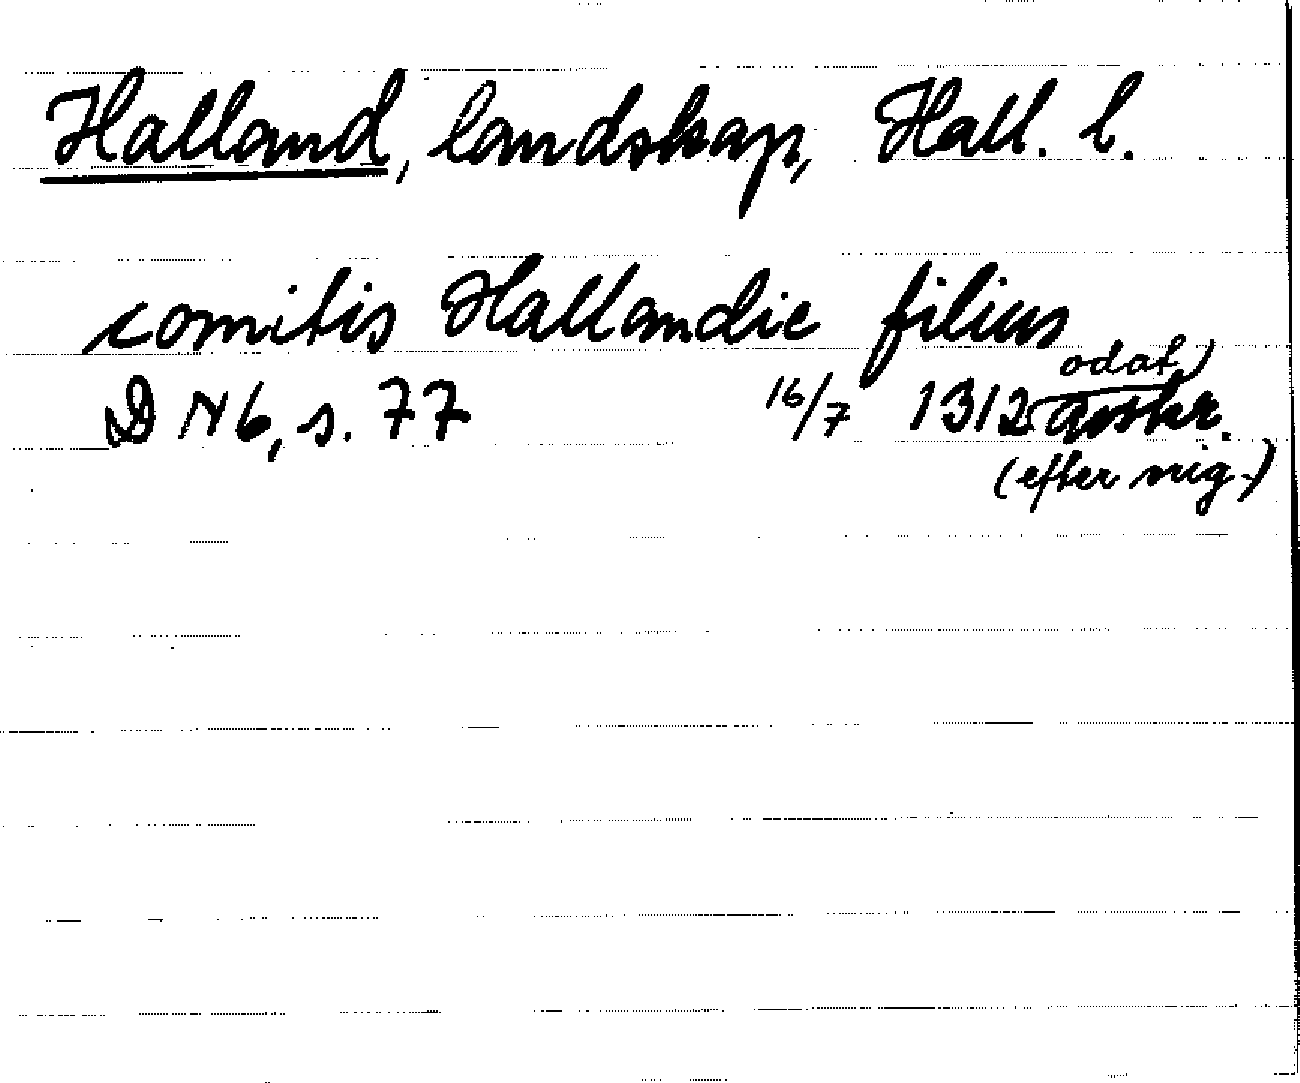 Halland, landskap, Hall. l.
comitis Hallandie filius
DN 6, s. 77 16/7 1312 odat.)
(efter sig.)